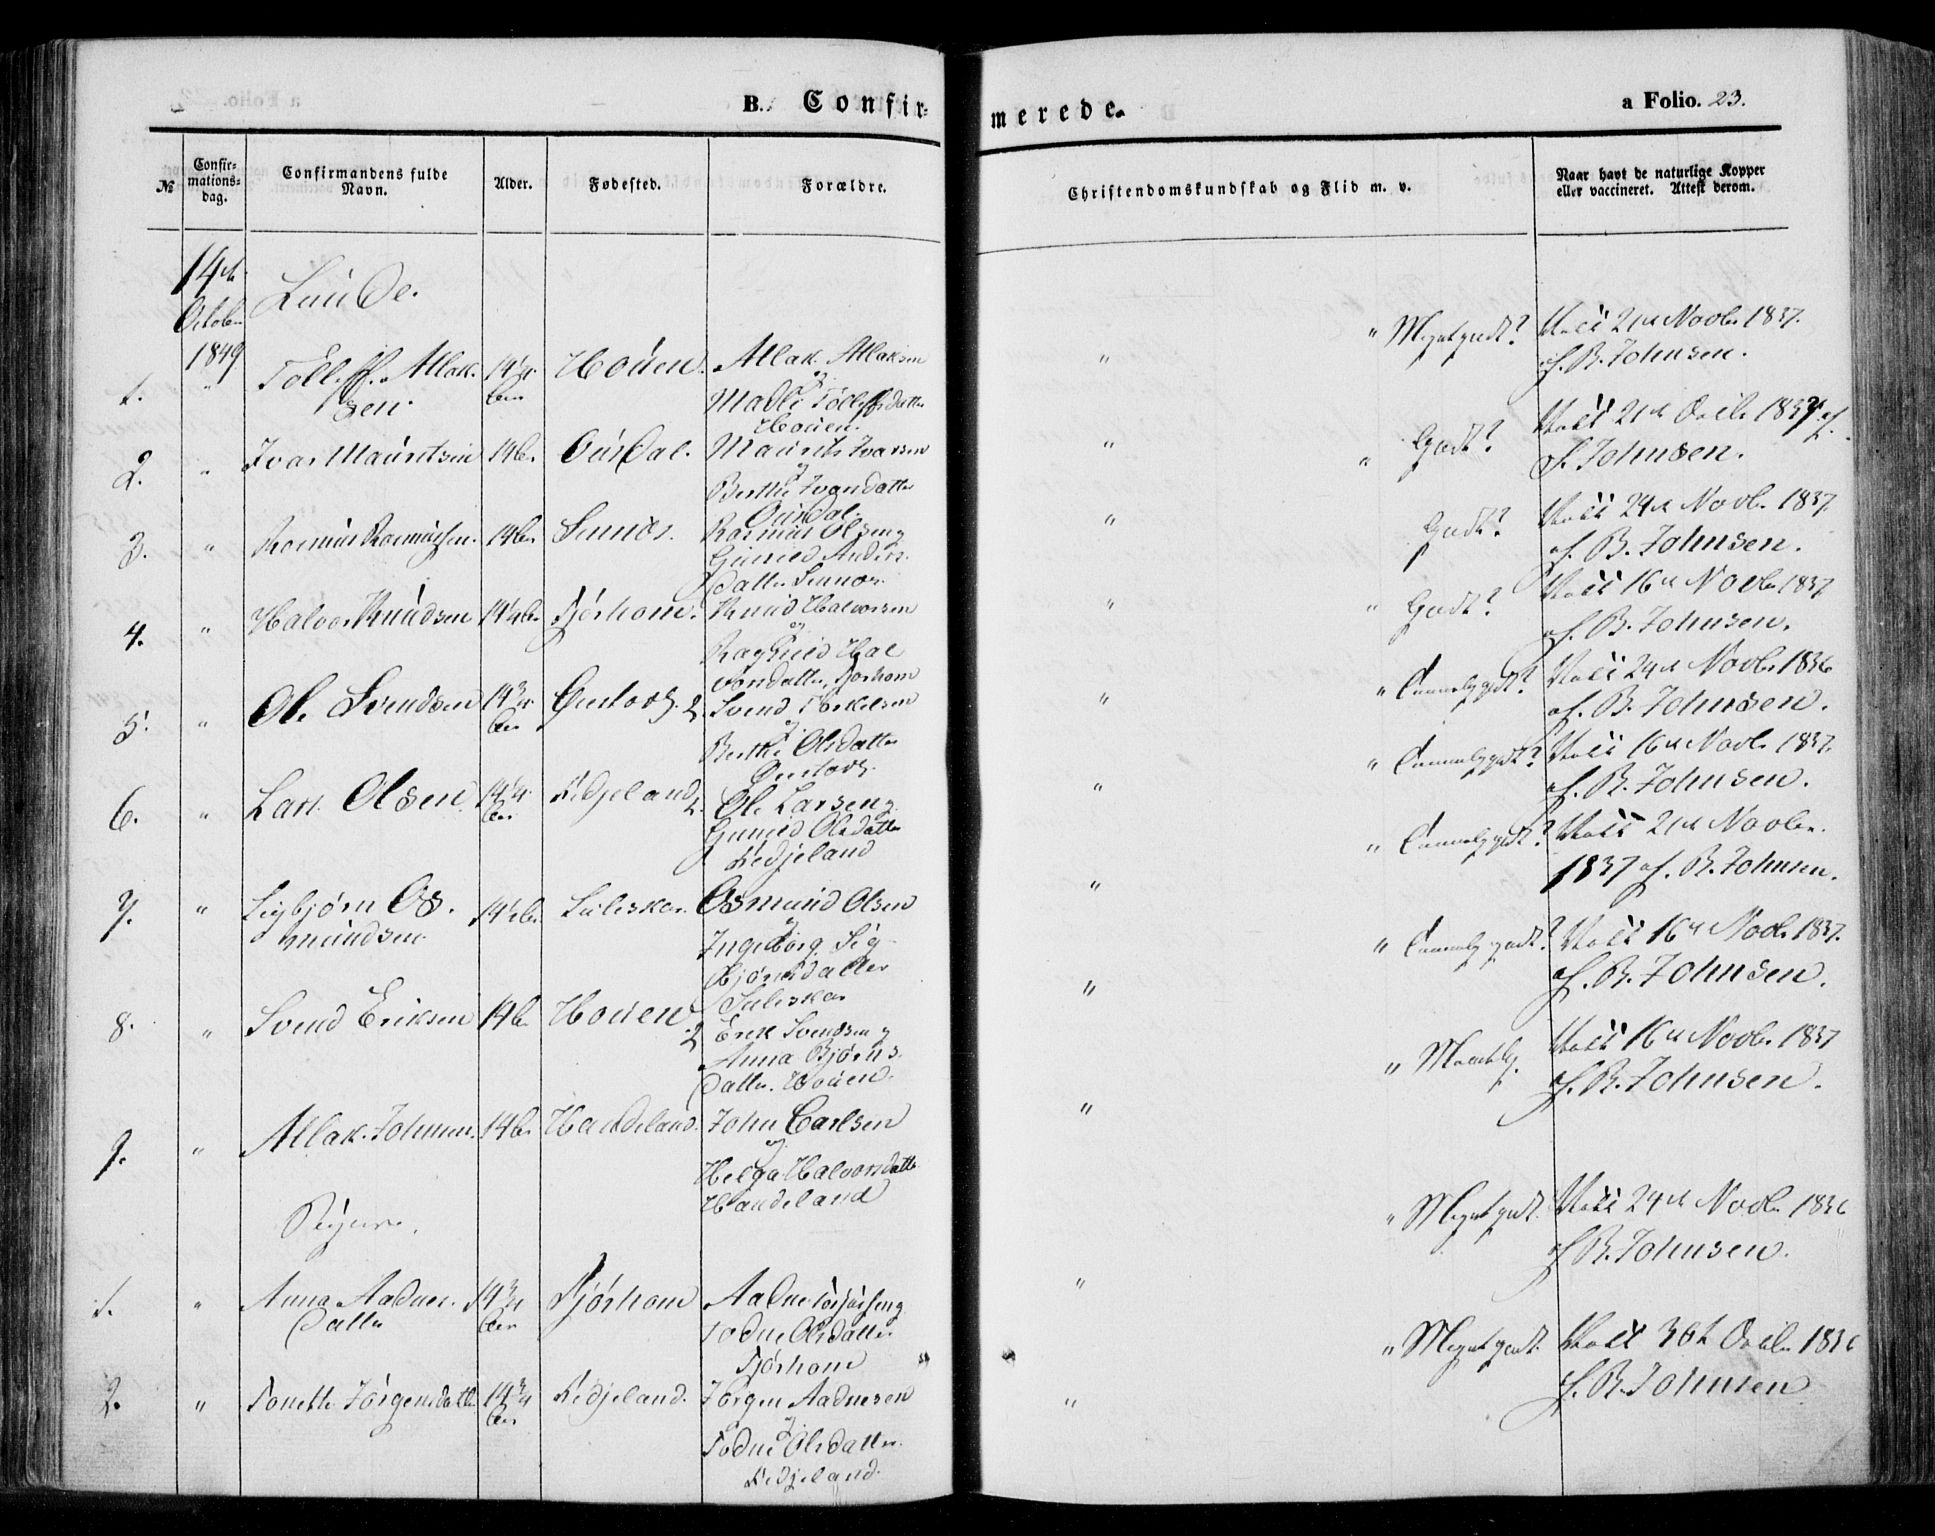 B. Confir-
merede.
a Folio. 23.
№
Confir-
mations-
dag.
Confirmandens fulde
Navn.
Alder.
Fødested.
Forældre.
Christendomskundskab og Flid m. v.
Naar havt de naturlige Kopper
eller vaccineret. Attest derom.
14de
October
1849
1. " Tollef Atlak-
sen. 14¼ Aar Houen. Atlak Atlaksen
og
Madli Tollefsdatter
Houen.
" " Megetgodt? Vacc 21de Novbr 1837.
af B. Johnsen.
2. " Ivar Mauritsen 14 Aar Ousdal. Maurits Ivarsen
og
Berthe Ivarsdatter
Ousdal.
" " Godt? Vacc 21de Decbr 1837 af
S. Johnsen.
3. " Rasmus Rasmussen. 14 Aar Sinnes. Rasmus Olsen og
Gunild Anders-
datter Sinnes.
" Godt? Vacc 24de Novbr 1837.
af B. Johnsen.
4. " Halvor Knudsen 14¼ Aar Fjørhom. Knud Halvorsen
og
Ragnild Hal
vorsdatter, Fjørhom
" " Godt? Vacc 16de Novbr 1837
af B. Johnsen.
5. " Ole Svendsen 14¾ Aar Svend Torkelsen
og
Berthe Olsdatter
" " Temmeliggodt? Vacc 24de Novbr 1836
af B. Johnsen.
6. " Lars Olsen 14¼ Aar Fidjeland Ole Larsen og
Gunild Olsdatter
Fidjeland
" " Temmeliggodt? Vacc 16de Novbr 1837.
af B. Johnsen.
7. " Sigbjørn Os-
mundsen 14½ Aar Suleskar. Osmund Olsen
og
Ingeborg Sig-
bjørnsdatter
Suleskar
" " Temmeliggodt? Vacc 21de Novbr.
1837 af B. Johnsen.
8. " Svend Eriksen 14 Aar Houen Erik Svendsen og
Anna Bjørns-
datter Houen.
" " Temmelig godt? Vacc 16de Novbr 1837.
af B. Johnsen.
9. " Atlak Johnsen. 14 Aar Handeland. John Carlsen
og
Helga Halvorsdatter
Handeland
" " Maadelig. Vacc 16de Novbr 1837
af B. Johnsen.
Piger.
1. " Anna Aadnes-
datter 14¾ Aar Fjørhom Aadne
Todne Olsdatter
Fjørhom
" " Megetgodt. Vacc 24de Novbr 1836
af B. Johnsen.
2. " Tonette Jørgensdatter 14¾ Aar Fidjeland. Jørgen Aadnesen
og
Todne Olsdatter
Fidjeland.
" " Megetgodt. Vacc 30te Decbr 1836
af B. Johnsen